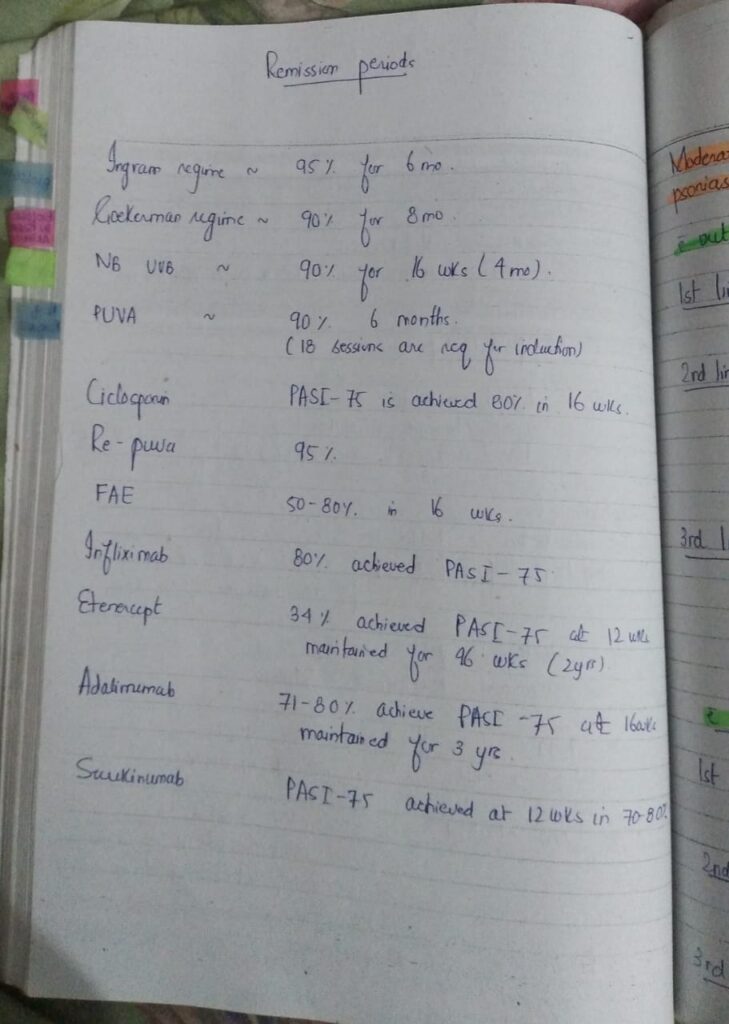 Remission periods
Ingram regime ~ 95% for 6 mo.
Goekerman regime ~ 90% for 8 mo.
NB UVB ~ 90% for 16 wks (4 mo).
PUVA ~ 90% 6 months.
(18 sessions are req for induction)
Ciclosporin PASI-75 is achieved 80% in 16 wks.
Re-puva 95%.
FAE 50-80% in 16 wks.
Infliximab 80% achieved PASI-75
Etenercept 34% achieved PASI-75 at 12 wks
maintained for 96 wks (2yrs)
Adalimumab 71-80% achieve PASI-75 at 16wks
maintained for 3 yrs.
Secukinumab PASI-75 achieved at 12 wks in 70-80%
Modera
psorias
c̄ out
1st lin
2nd lin
3rd l
c̄
1st
2nd
3rd